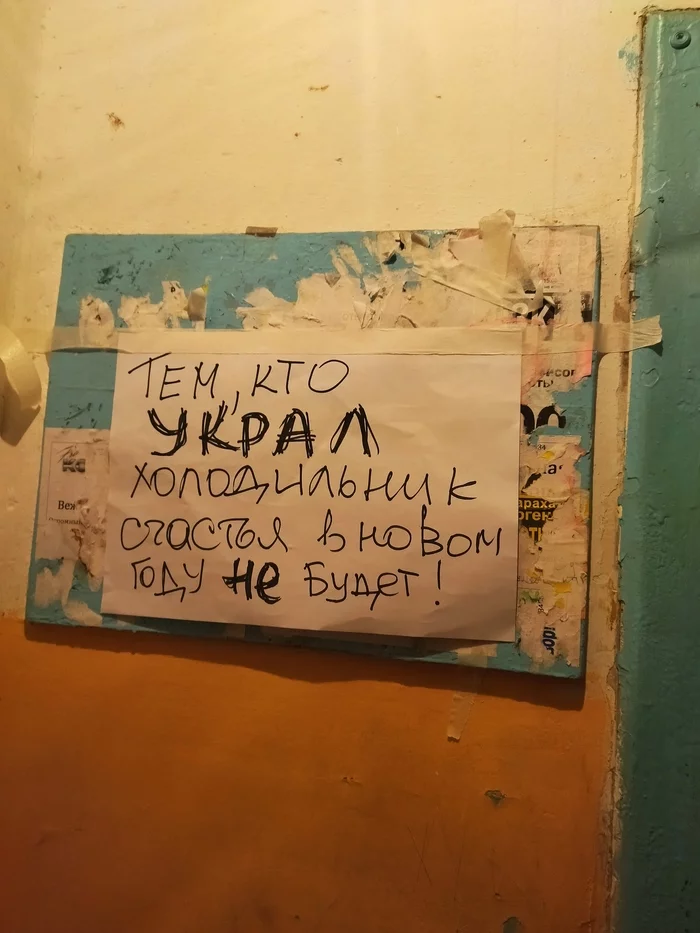 ТЕМ, КТО
УКРАЛ
ХОЛОДИЛЬНИК
счастья в новом
году не будет!
Веж
араха
оген